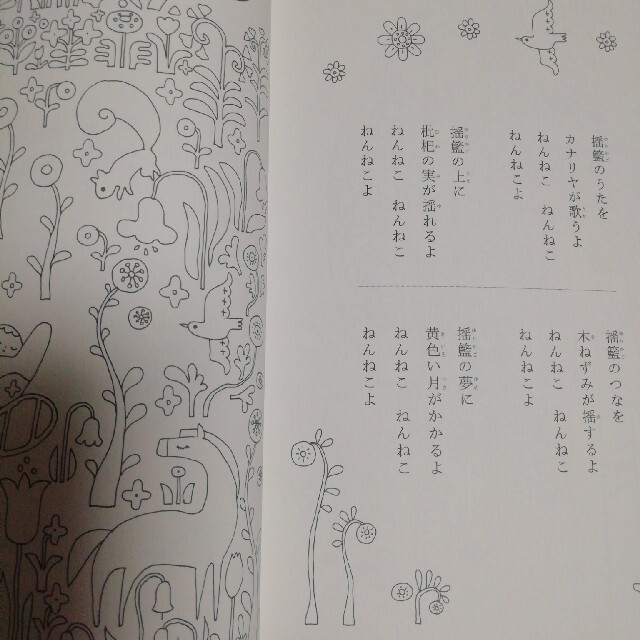 揺籃のうたを
カナリヤが歌うよ
ねんねこ　ねんねこ
ねんねこよ
揺籃の上に
枇杷の実が揺れるよ
ねんねこ　ねんねこ
ねんねこよ
揺籃のつなを
木ねずみが揺するよ
ねんねこ　ねんねこ
ねんねこよ
揺籃の夢に
黄色い月がかかるよ
ねんねこ　ねんねこ
ねんねこよ